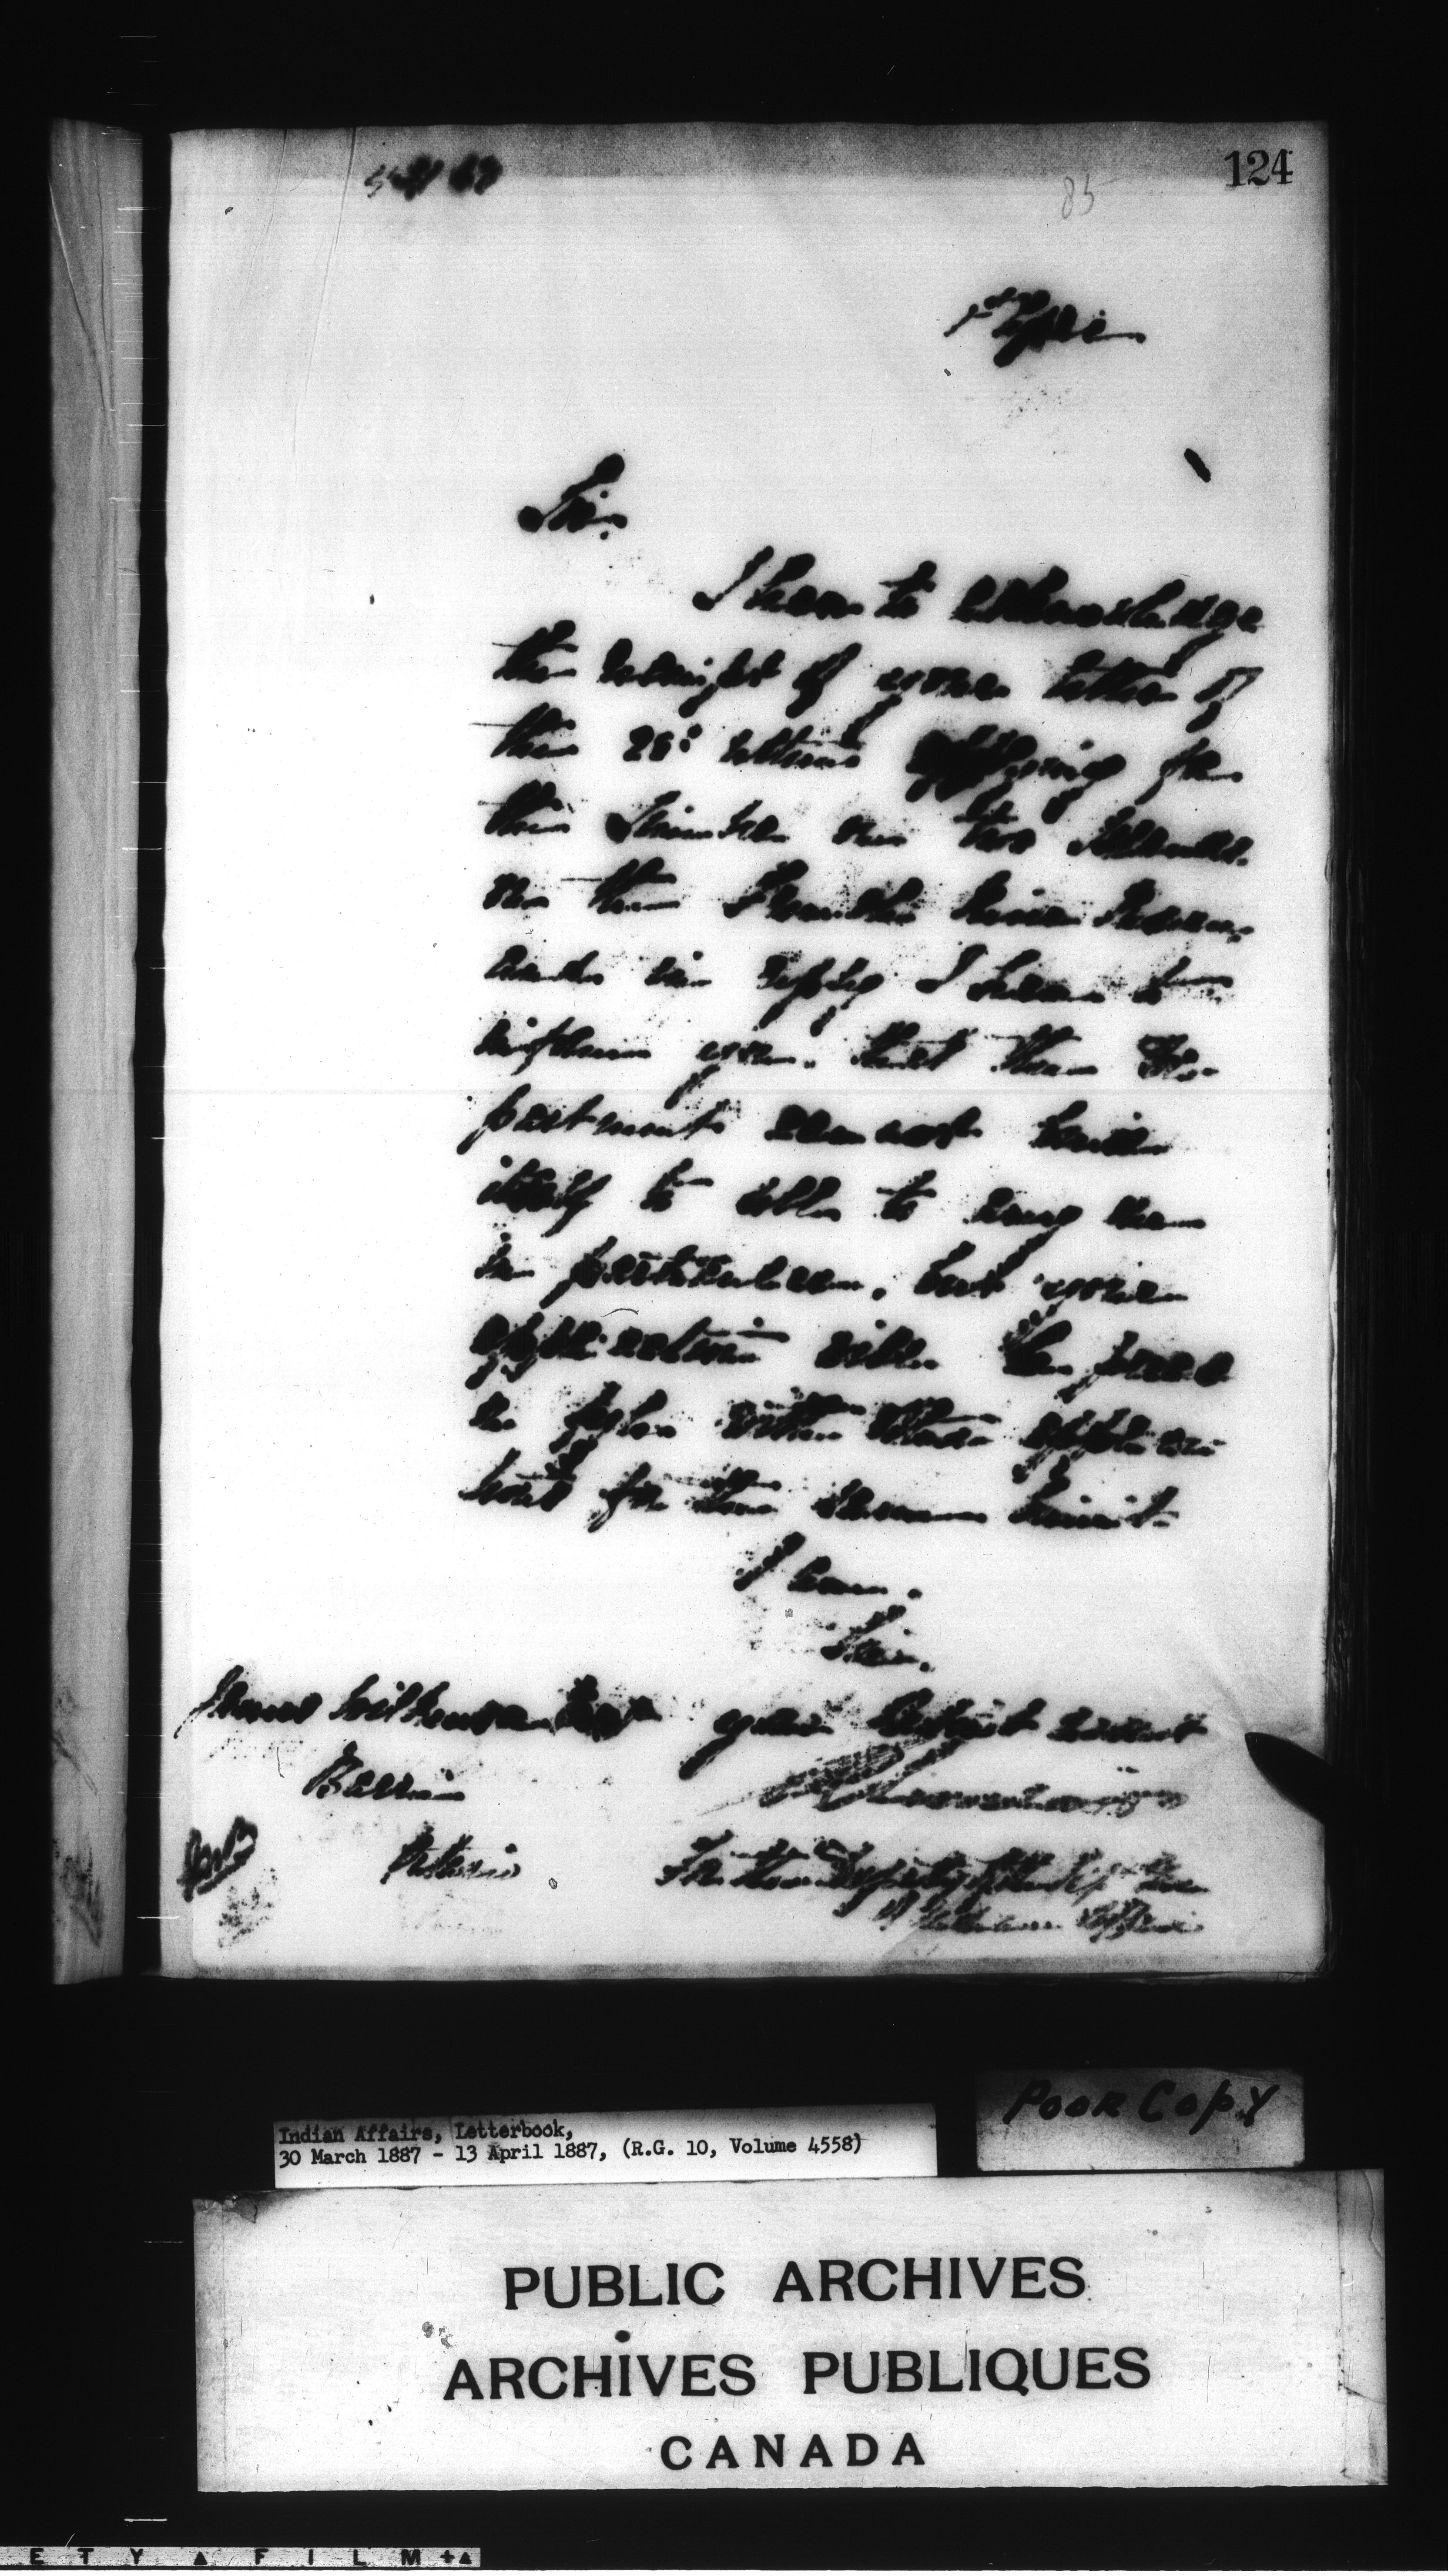 124
85
1st April
Sir,
I have to acknowledge
the receipt of your letter of
the 28th ultimo applying for
the timber on two
on the French River
and in reply I have to
inform you that the De-
partment cannot bind
itself to sell to any one
in particular, but your
application will be placed
on file with other applica-
tions for the same limit.
I have,
Sir,
your obedient servant
James Wilkinson Esqr
Barrie
Ontario
For the Deputy of the Supt. Gen.
of Indian Affairs
Poor Copy
Indian Affairs, Letterbook,
30 March 1887 - 13 April 1887, (R.G. 10, Volume 4558)
PUBLIC ARCHIVES
ARCHIVES PUBLIQUES
CANADA
E T Y ▲ F I L M